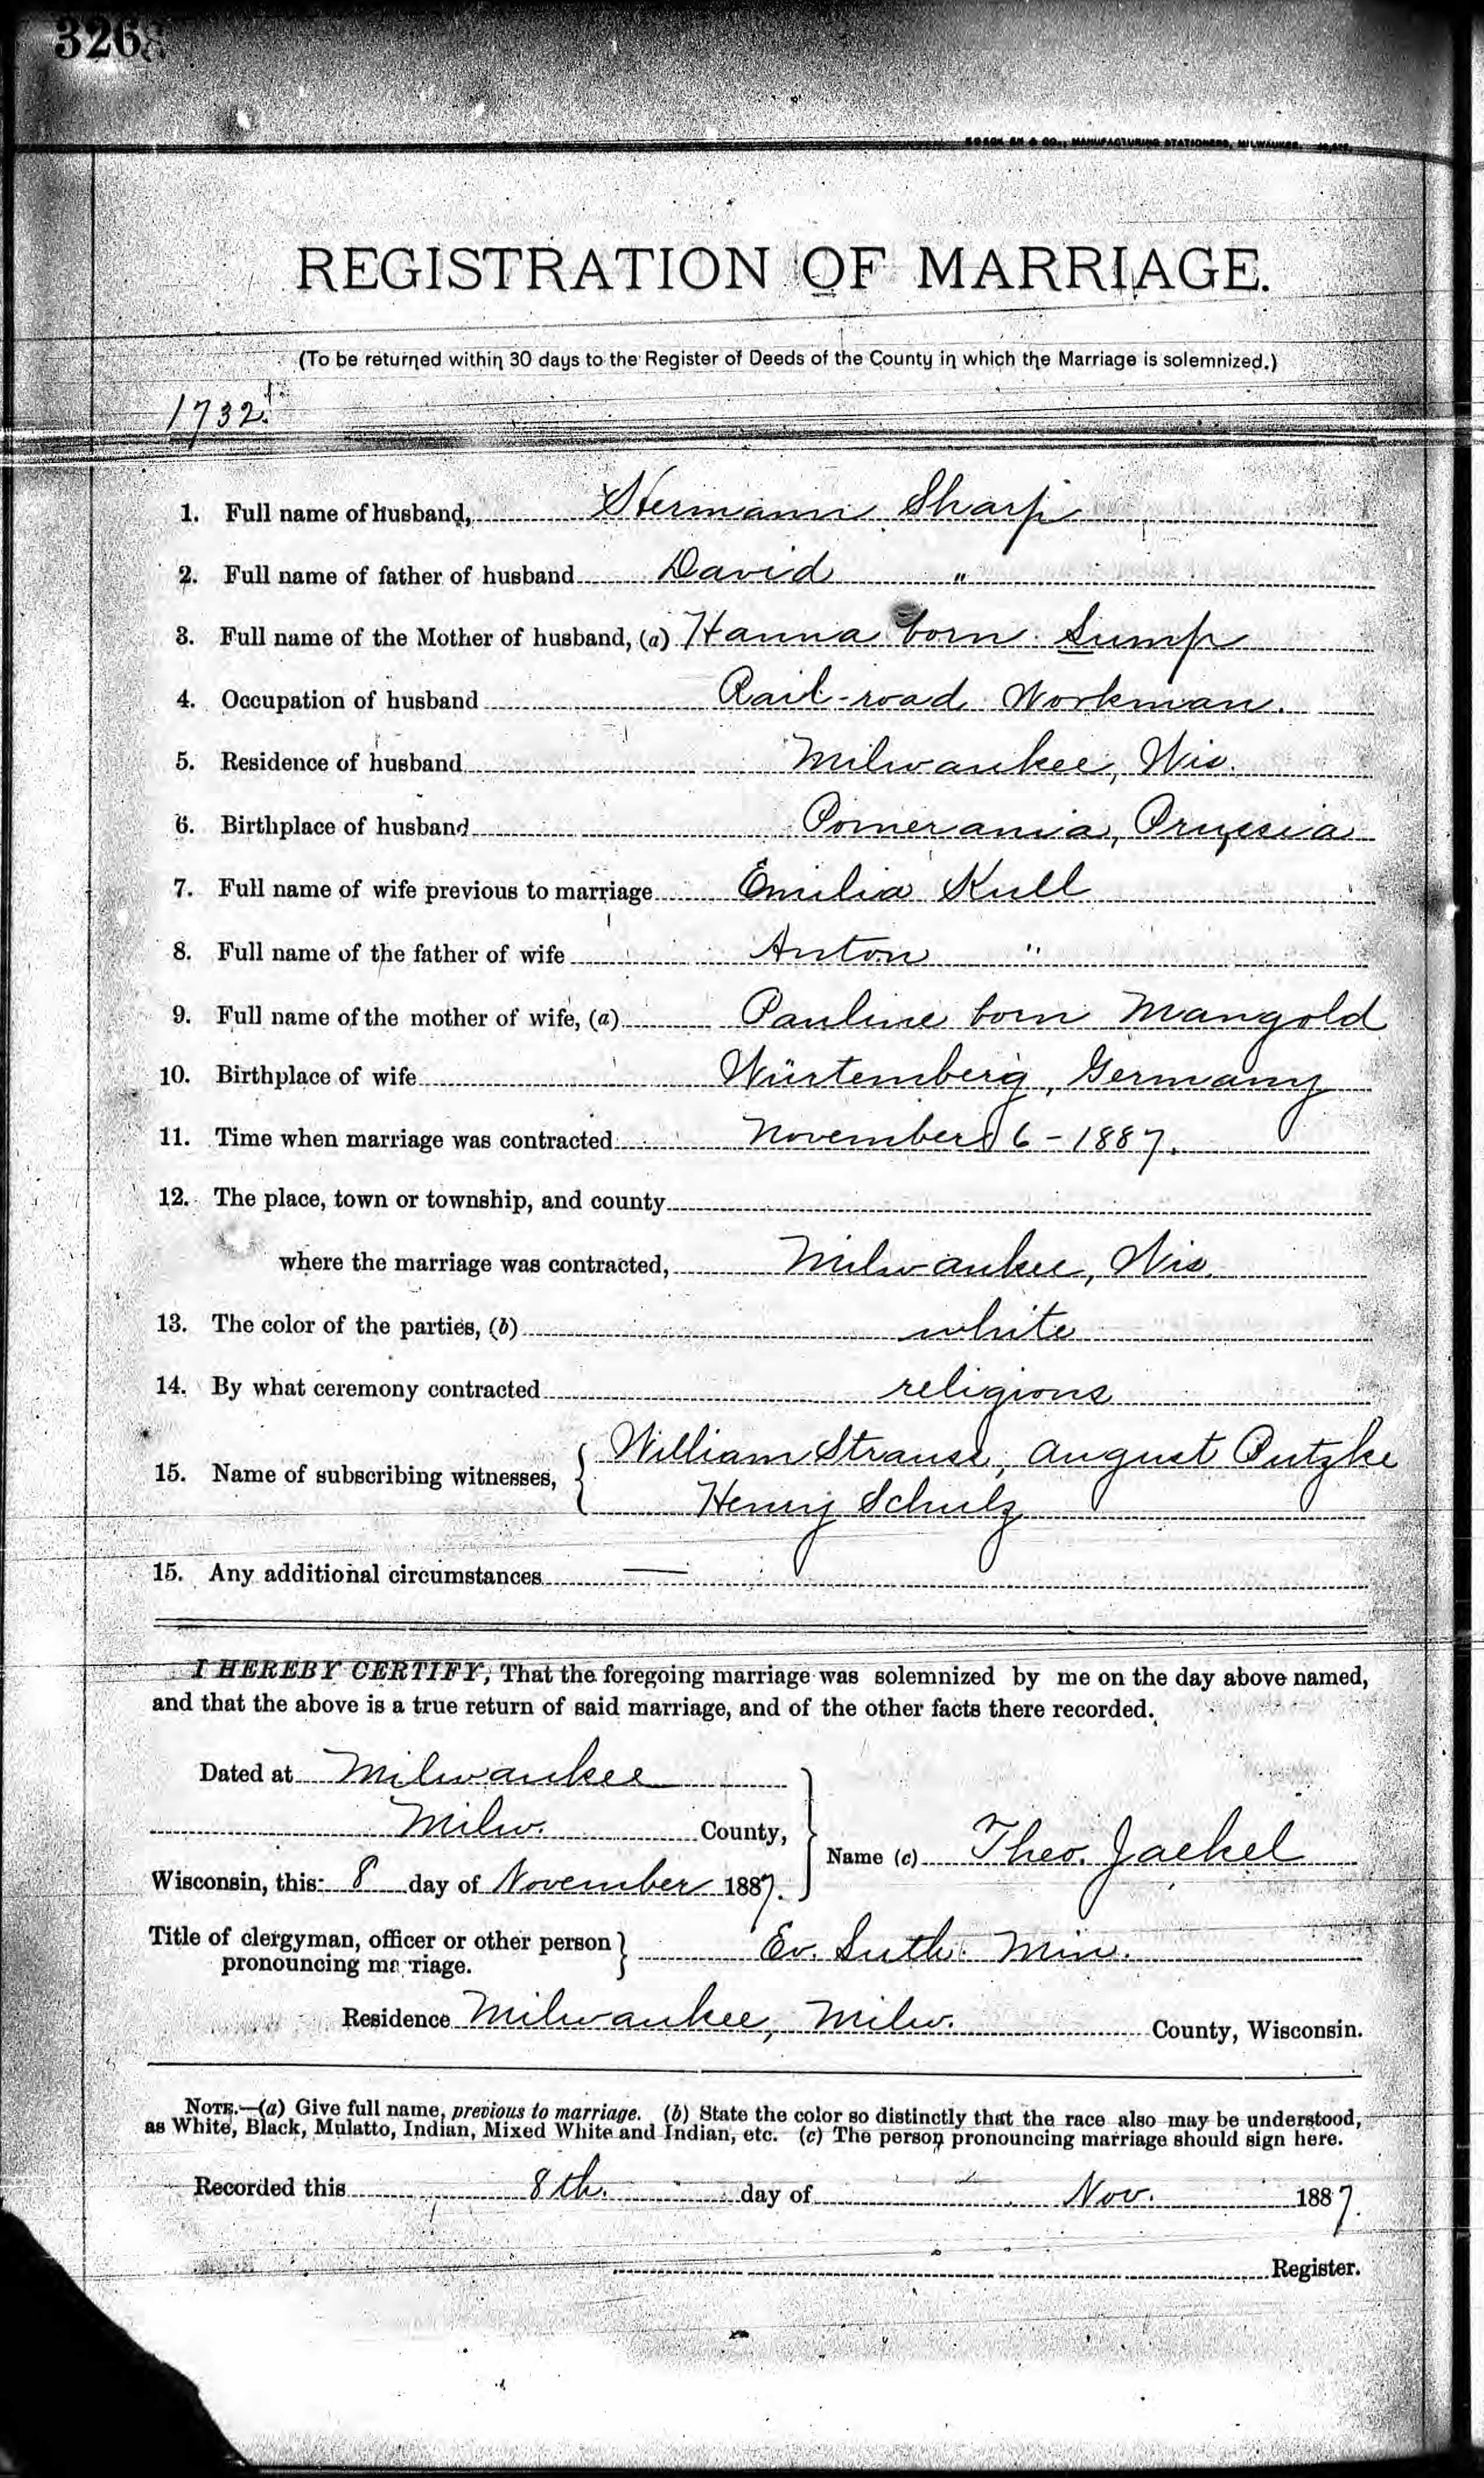 326
MANUFACTURING STATIONERS, MILWAUKEE.
REGISTRATION OF MARRIAGE.
(To be returned within 30 days to the Register of Deeds of the County in which the Marriage is solemnized.)
1732.
1. Full name of husband, Hermann Sharp
2. Full name of father of husband David "
3. Full name of the Mother of husband, (a) Hanna born Sump
4. Occupation of husband Rail-road Workman.
5. Residence of husband Milwaukee, Wis.
6. Birthplace of husband Pomerania, Prussia
7. Full name of wife previous to marriage Emilia Kull
8. Full name of the father of wife Anton "
9. Full name of the mother of wife, (a) Pauline born Mangold
10. Birthplace of wife Würtemberg, Germany
11. Time when marriage was contracted November 6 - 1887.
12. The place, town or township, and county
where the marriage was contracted, Milwaukee, Wis.
13. The color of the parties, (b) white
14. By what ceremony contracted religious
15. Name of subscribing witnesses, { William Strauss, August Putzke
Henry Schulz
15. Any additional circumstances —
I HEREBY CERTIFY, That the foregoing marriage was solemnized by me on the day above named,
and that the above is a true return of said marriage, and of the other facts there recorded.
Dated at Milwaukee
Milw. County,
Name (c) Theo. Jaekel
Wisconsin, this 8 day of November 1887.
Title of clergyman, officer or other person
pronouncing marriage. } Ev. Luth. Min.
Residence Milwaukee, Milw. County, Wisconsin.
NOTE.—(a) Give full name, previous to marriage. (b) State the color so distinctly that the race also may be understood,
as White, Black, Mulatto, Indian, Mixed White and Indian, etc. (c) The person pronouncing marriage should sign here.
Recorded this 8th. day of Nov. 1887.
Register.